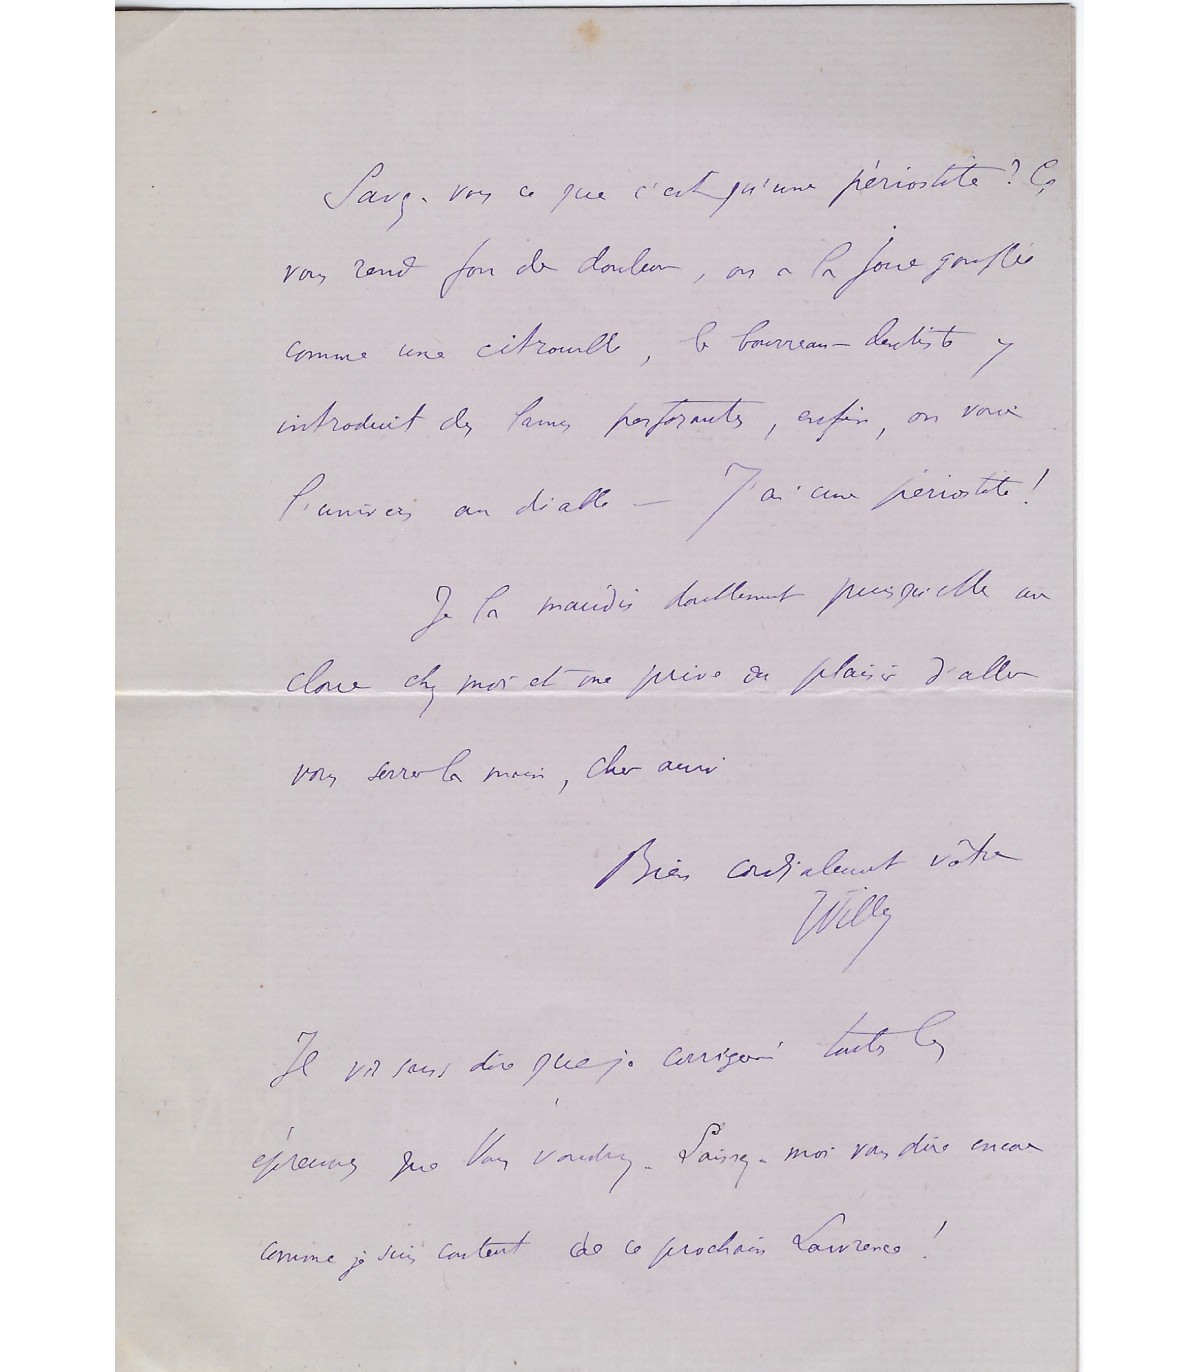 Savez-vous ce que c'est qu'une périostite ? Ça
vous rend fou de douleur, on a la joue gonflée
comme une citrouille, le bourreau-dentiste y
introduit des lames perforantes, enfin, on voue
l'univers au diable — J'ai une périostite !
Je la maudis doublement puisqu'elle me
cloue chez moi et me prive du plaisir d'aller
vous serrer la main, cher ami
Bien cordialement vôtre
Willy
Il va sans dire que je corrigerai toutes les
épreuves que vous voudrez. Laissez-moi vous dire encore
comme je suis content de ce prochain Lawrence !